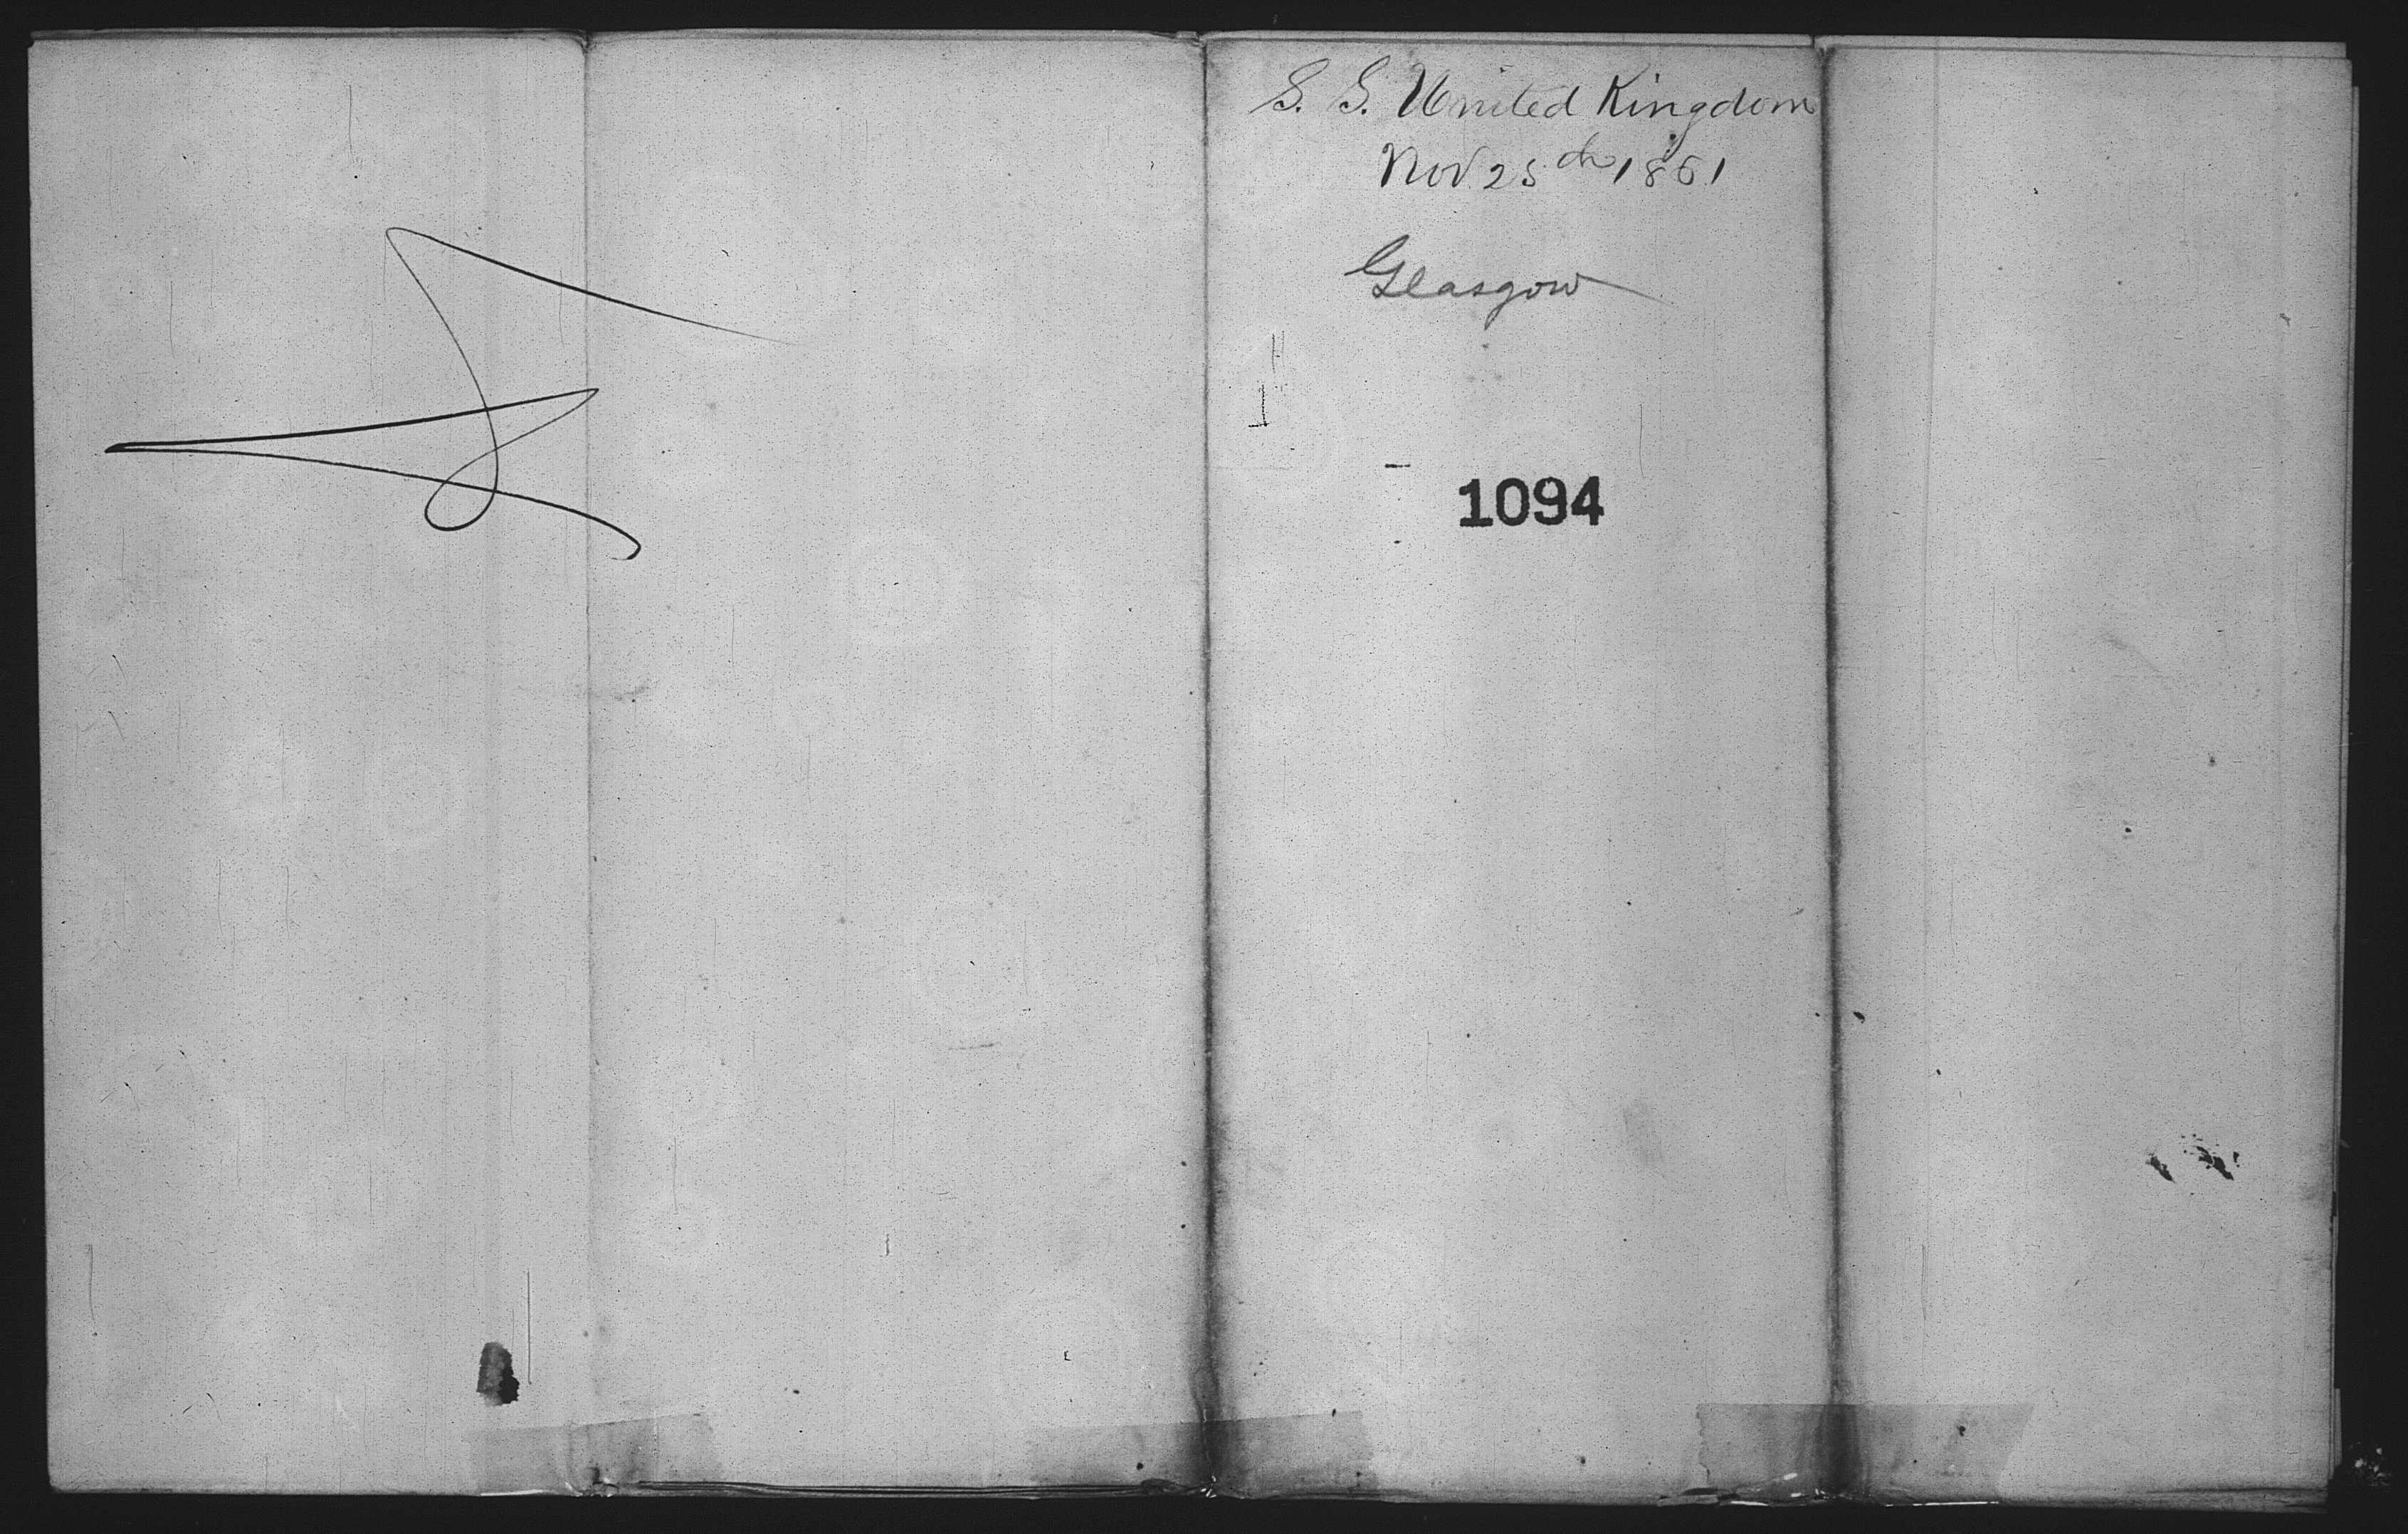 S. S. United Kingdom
Nov 25th 1861
Glasgow
1094